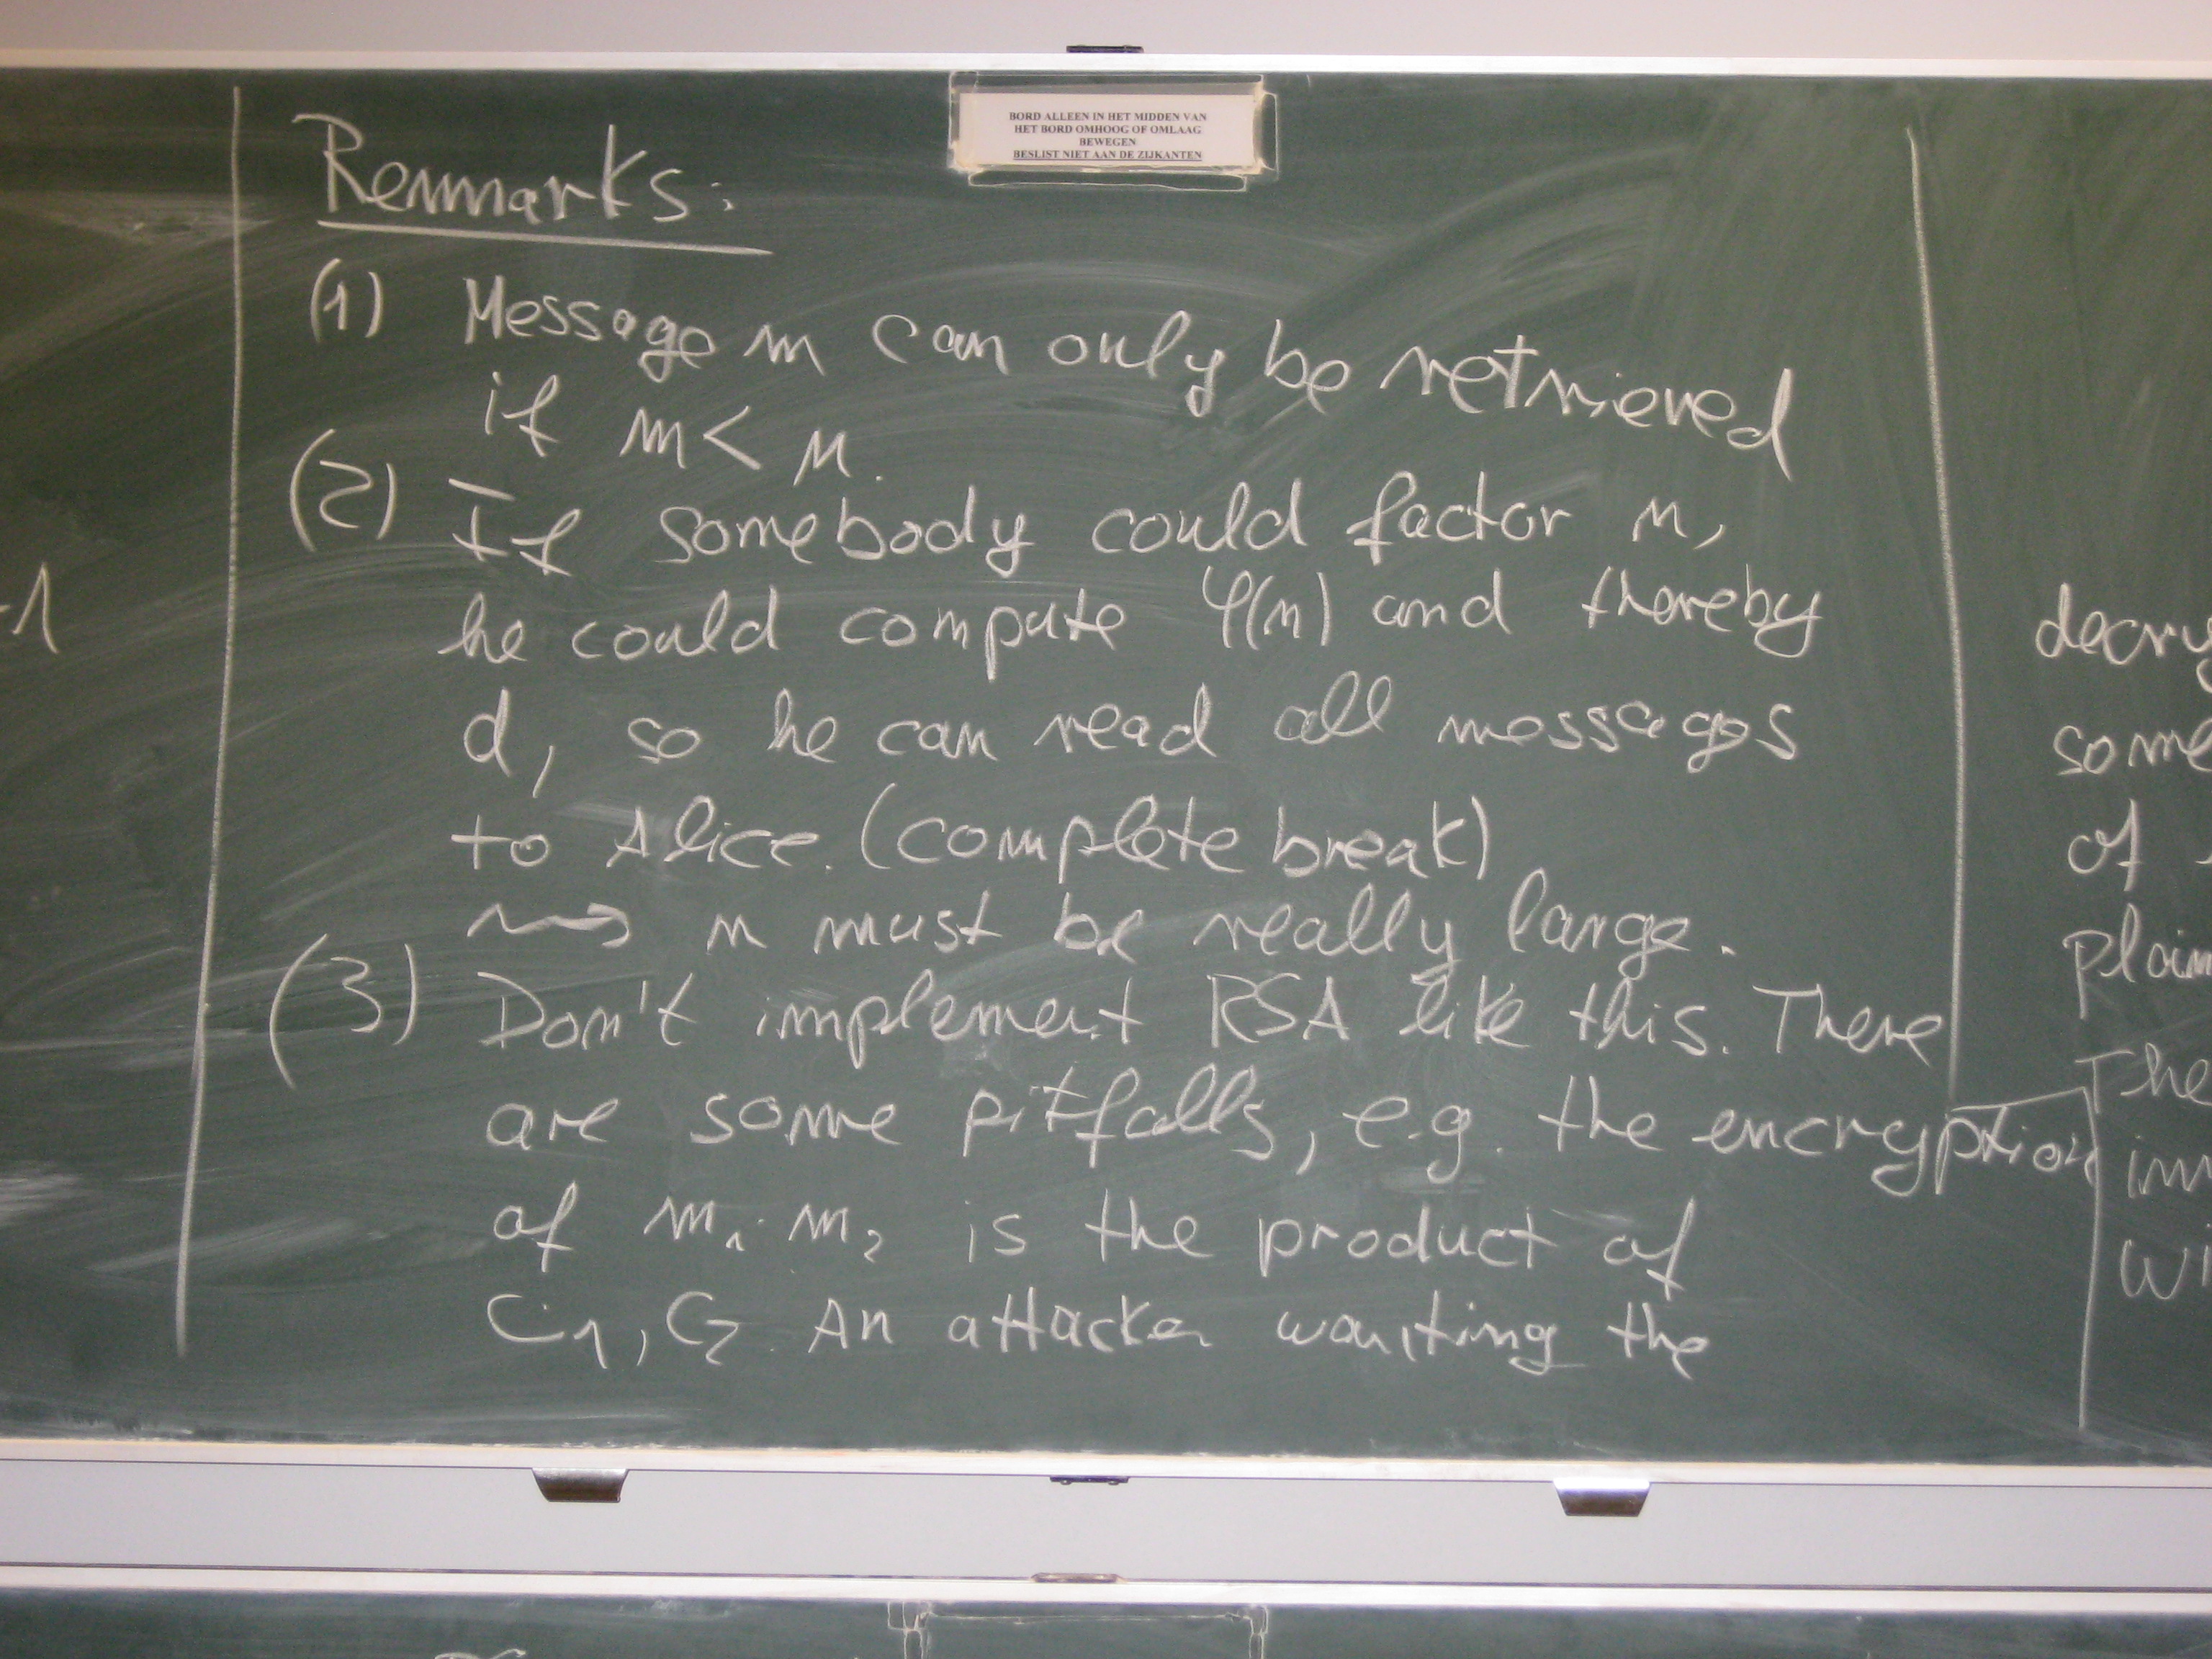 BORD ALLEEN IN HET MIDDEN VAN
HET BORD OMHOOG OF OMLAAG
BEWEGEN
BESLIST NIET AAN DE ZIJKANTEN
Remarks:
(1) Message m can only be retrieved
if m < n.
(2) If somebody could factor n,
he could compute φ(n) and thereby
d, so he can read all messages
to Alice. (complete break)
⇝ n must be really large.
(3) Don't implement RSA like this. There
are some pitfalls, e.g. the encryption
of m₁·m₂ is the product of
C₁, C₂. An attacker wanting the
-1
decry
some
of
plain
The
inv
wi